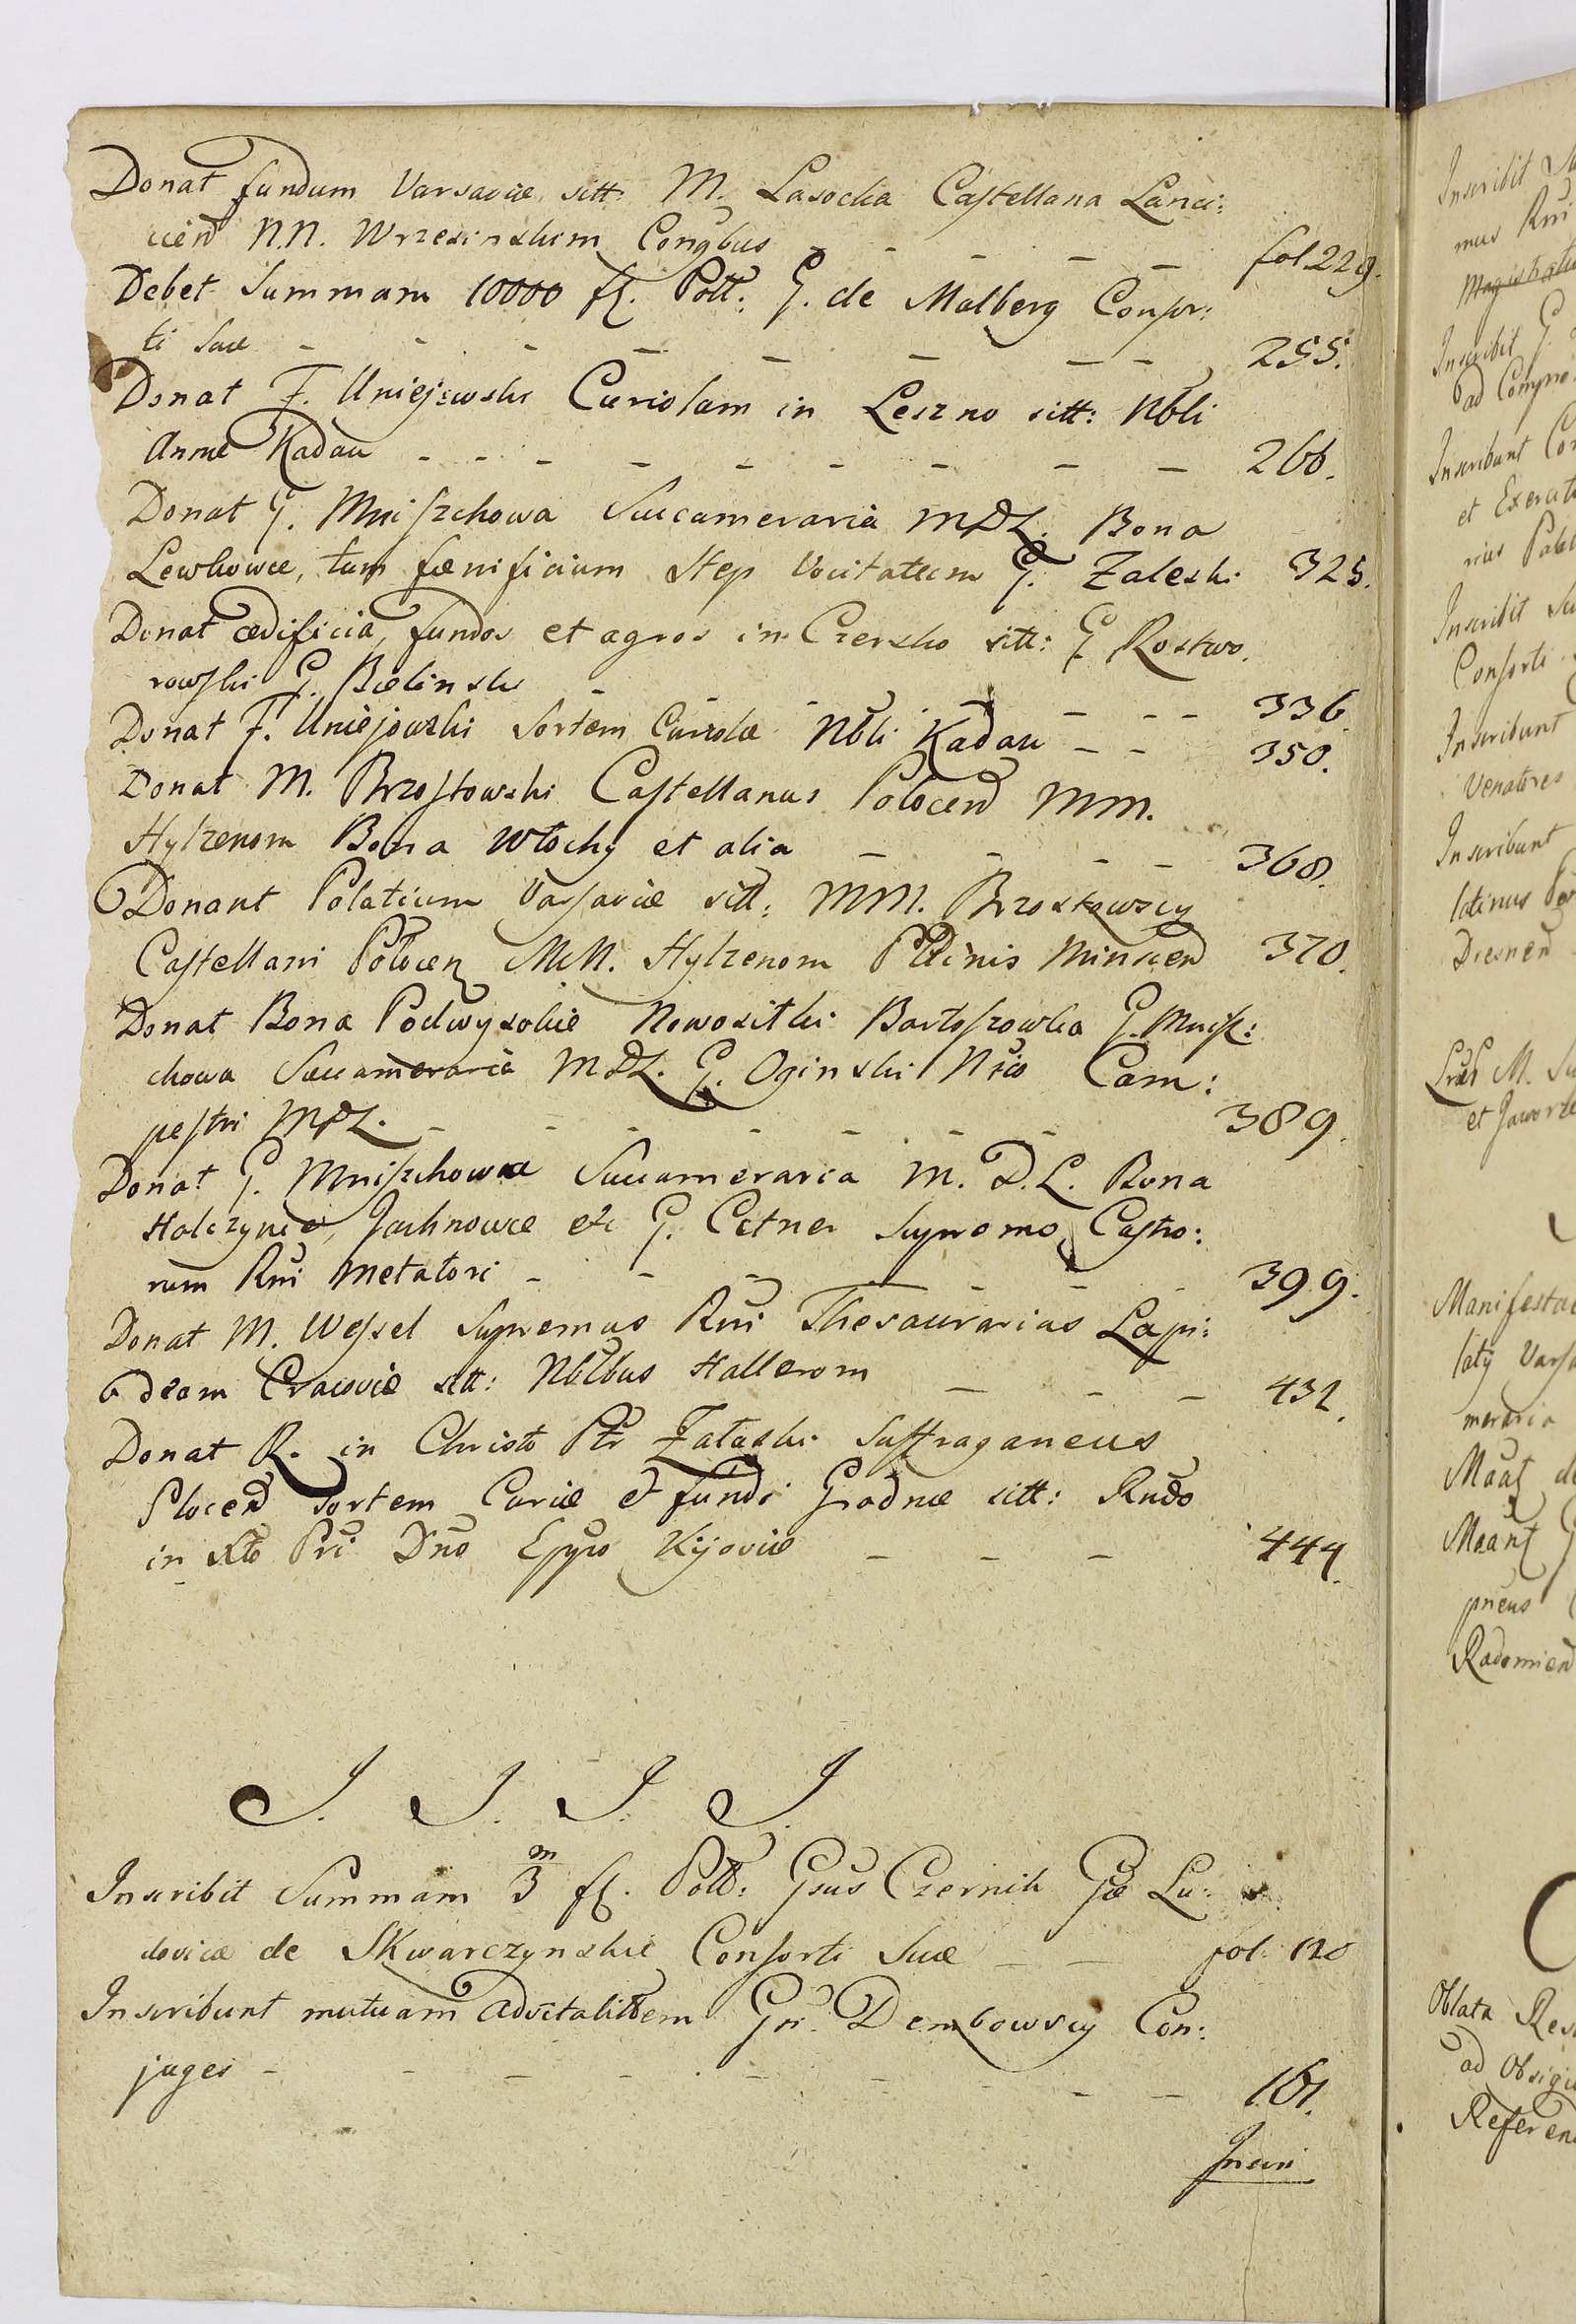 Donat fundum Varsaviæ sitt: M. Lasocka Castellana Lanci:
cień N.N. Wrzesinskim Coňgbus — — — — fol 229.
Debet Summam 10000 fl. Poll: G. de Malberg Consor:
ti suæ — — — — — — — — 255.
Donat F. Uniejowski Curiolam in Leszno sitt: Nbli
Annæ Kadau — — — — — — — — — 266.
Donat G. Mniszchowa Succameraria MDL. Bona
Lewkowce, tum fœnificium Step Vocitatum G. Zaleski 325.
Donat ædificia, fundos et agros in Czersko sitt: G. Rostwo.
rowski G. Bielinski — — — — — — 336.
Donat F. Uniejowski Sortem Curiolæ Nbli Kadau — — 350.
Donat M. Brzostowski Castellanus Polocen MM.
Hylzenom Bona Włochy et alia — — — — 368.
Donant Palatium Varsaviæ sitt: MM. Brzostowscy
Castellani Polocen MM. Hylzenom Pltinis Minscen 370.
Donat Bona Podwysokie Nowosiłki Bartoszowka G. Mnisz:
chowa Succameraria MDL. G. Oginski Nrio Cam:
pestri MDL. — — — — — — — 389.
Donat G. Mniszchowa Succameraria M.D.L. Bona
Halczynce, Jachnowce etc G. Cetner Supremo Castro:
rum Rni Metatori — — — — — — 399.
Donat M. Wessel Supremus Rni Thesaurarius Lapi:
deam Cracoviæ sitt: Nblbus Hallerom — — — 432.
Donat R. in Christo Ptr Załuski Suffraganeus
Plocen Sortem Curiæ et fundi Grodnæ sitt: Rndo
in Xto Pri Dno Eppo Kijoviæ — — — 444.
J. J. J. J.
Inscribit Summam 3 m fl. Poll: Gsus Czernik Gæ Lu:
dovicæ de Skwarczynskie Consorti Suæ — — fol. 120
Inscribunt mutuam advitalitatem Gni Dembowscy Con:
juges — — — — — — — — 161.
Inscri
Inscribit
mus Rni
Magistratu
Inscribit G.
ad Compro
Inscribunt Con
et Exercit
Inscribit Su
Consorti
Inscribunt
Venatores
Inscribunt
latinus
Dresnen
et Jaworze
Manifestat
latij Varsa
meraria
Radomien
Oblata Res
ad Obsigi
Referen